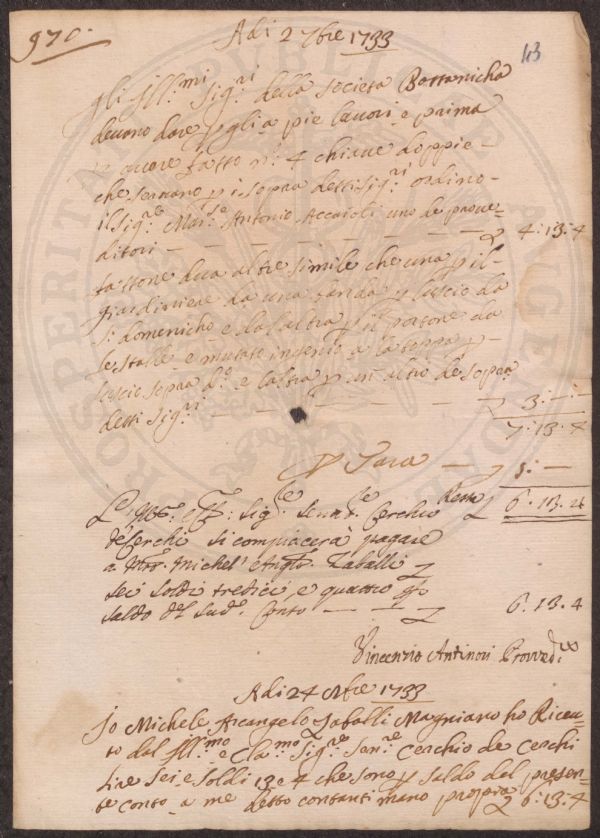 970.
Adi 2 7bre 1733
43
Gli Ill.mi Sig.ri della Societa Bottanicha
devano dare p gli a pie lavori e prima
p avere fatto n: 4 chiave doppie
che servano p i sopra detti Sig.ri ordino
il Sig.re Mar.se Antonio Accaioli uno de prove=
ditori — — — — — £ 4:13:4
fattone dua altre simile che una p il
giardiniere da una banda p luscio da
S: domenicho e la laltra p il portone da
le stalle e mutato ingenio a la toppa p
luscio sopra d.o e laltra p un altro de sopra
detti Sig.ri — — — — £ 3:—:—
7:13:4
p Tara — £ 1:—
Resta £ 6:13:4
L' Ill: e : Sig.re Senat.re Cerchio
de Cerchi si compiacerà pagare
a M.ro Michel' Ang.lo Zaballi £
sei soldi tredici e quattro p
saldo del sud.o Conto — — £ 6.13.4
Vincenzio Antinori Provved.re
Adi 24 1733
Io Michele Arcangelo Zaballi Magniano ho Riceu=
to dal Ill.mo e Cla.mo Sig.re Sen.re Cerchio de Cerchi
lire Sei e Soldi 13 e 4 che sono p saldo del presen=
te conto a me detto contanti mano propria £ 6:13:4